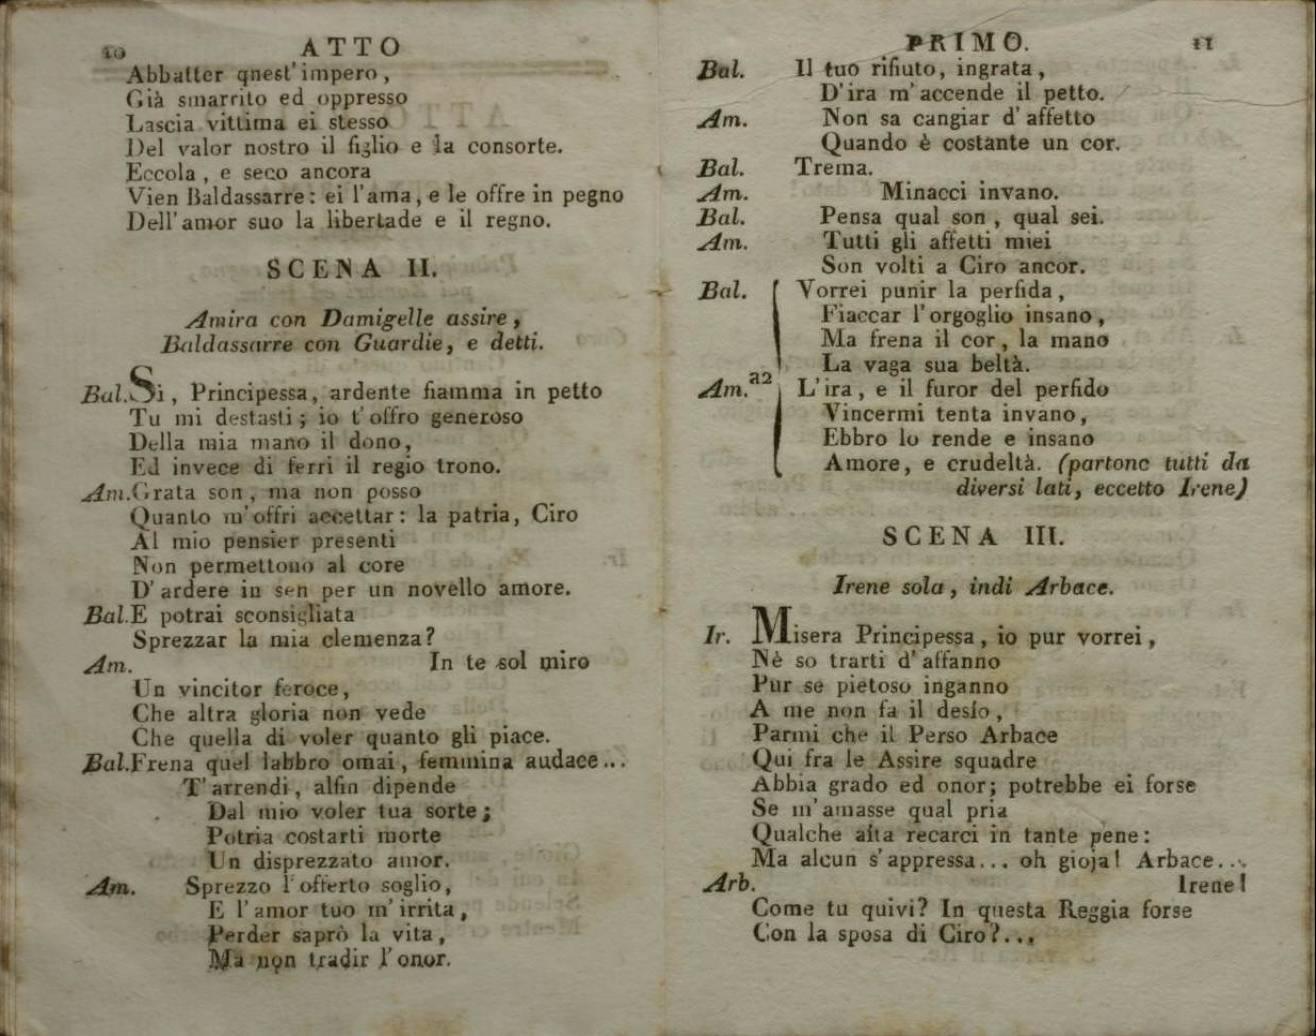 10 ATTO
Abbatter qnest' impero,
Già smarrito ed oppresso
Lascia vittima ei stesso
Del valor nostro il figlio e la consorte.
Eccola, e seco ancora
Vien Baldassarre: ei l'ama, e le offre in pegno
Dell'amor suo la libertade e il regno.
SCENA II.
Amira con Damigelle assire,
Baldassarre con Guardie, e detti.
Bal. Sì, Principessa, ardente fiamma in petto
Tu mi destasti; io t'offro generoso
Della mia mano il dono,
Ed invece di ferri il regio trono.
Am. Grata son, ma non posso
Quanto m'offri accettar: la patria, Ciro
Al mio pensier presenti
Non permettono al core
D'ardere in sen per un novello amore.
Bal. E potrai sconsigliata
Sprezzar la mia clemenza?
Am. In te sol miro
Un vincitor feroce,
Che altra gloria non vede
Che quella di voler quanto gli piace.
Bal. Frena quel labbro omai, femmina audace...
T'arrendi, alfin dipende
Dal mio voler tua sorte;
Potria costarti morte
Un disprezzato amor.
Am. Sprezzo l'offerto soglio,
E l'amor tuo m'irrita,
Perder saprò la vita,
Ma non tradir l'onor.
PRIMO. 11
Bal. Il tuo rifiuto, ingrata,
D'ira m'accende il petto.
Am. Non sa cangiar d'affetto
Quando è costante un cor.
Bal. Trema.
Am. Minacci invano.
Bal. Pensa qual son, qual sei.
Am. Tutti gli affetti miei
Son volti a Ciro ancor.
Bal. Vorrei punir la perfida,
Fiaccar l'orgoglio insano,
Ma frena il cor, la mano
La vaga sua beltà.
a2
Am. L'ira, e il furor del perfido
Vincermi tenta invano,
Ebbro lo rende e insano
Amore, e crudeltà. (partono tutti da
diversi lati, eccetto Irene)
SCENA III.
Irene sola, indi Arbace.
Ir. Misera Principessa, io pur vorrei,
Nè so trarti d'affanno
Pur se pietoso inganno
A me non fa il desio,
Parmi che il Perso Arbace
Qui fra le Assire squadre
Abbia grado ed onor; potrebbe ei forse
Se m'amasse qual pria
Qualche aita recarci in tante pene:
Ma alcun s'appressa... oh gioja! Arbace...
Arb. Irene!
Come tu quivi? In questa Reggia forse
Con la sposa di Ciro?...